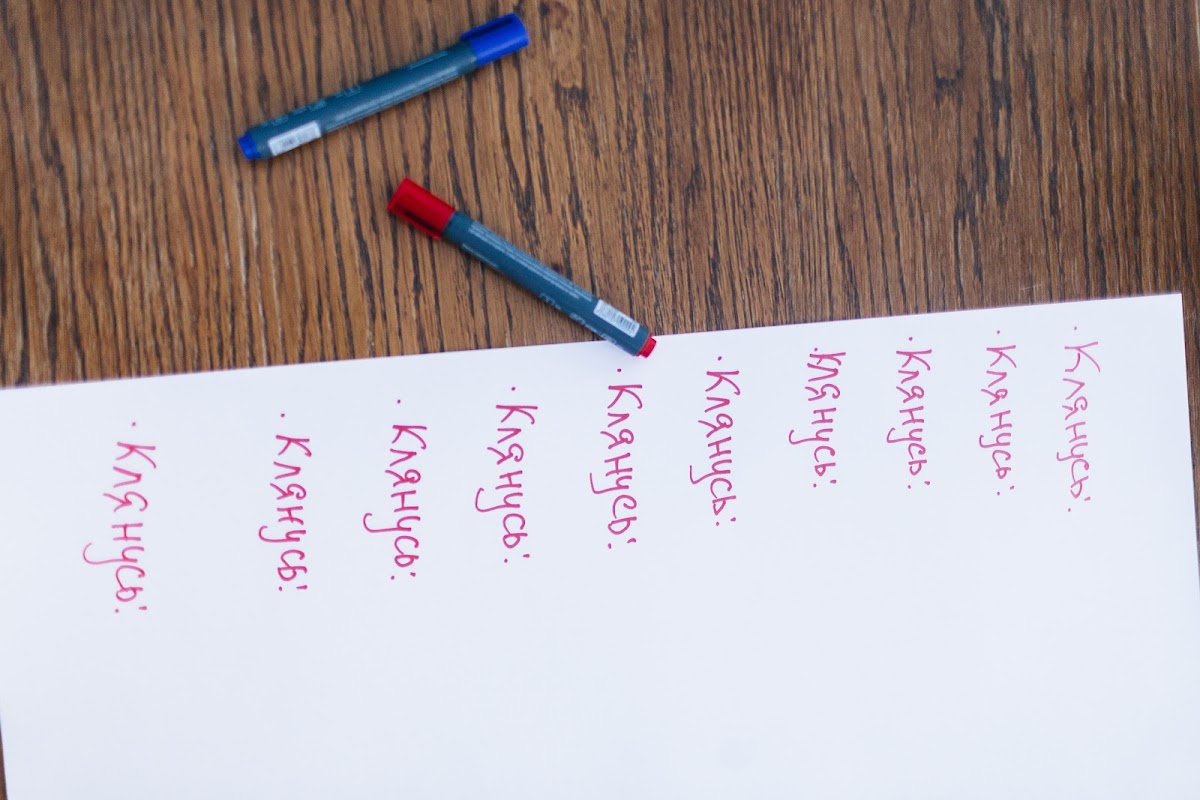 · Клянусь:
· Клянусь:
· Клянусь:
· Клянусь:
· Клянусь:
· Клянусь:
· Клянусь:
· Клянусь:
· Клянусь:
· Клянусь: